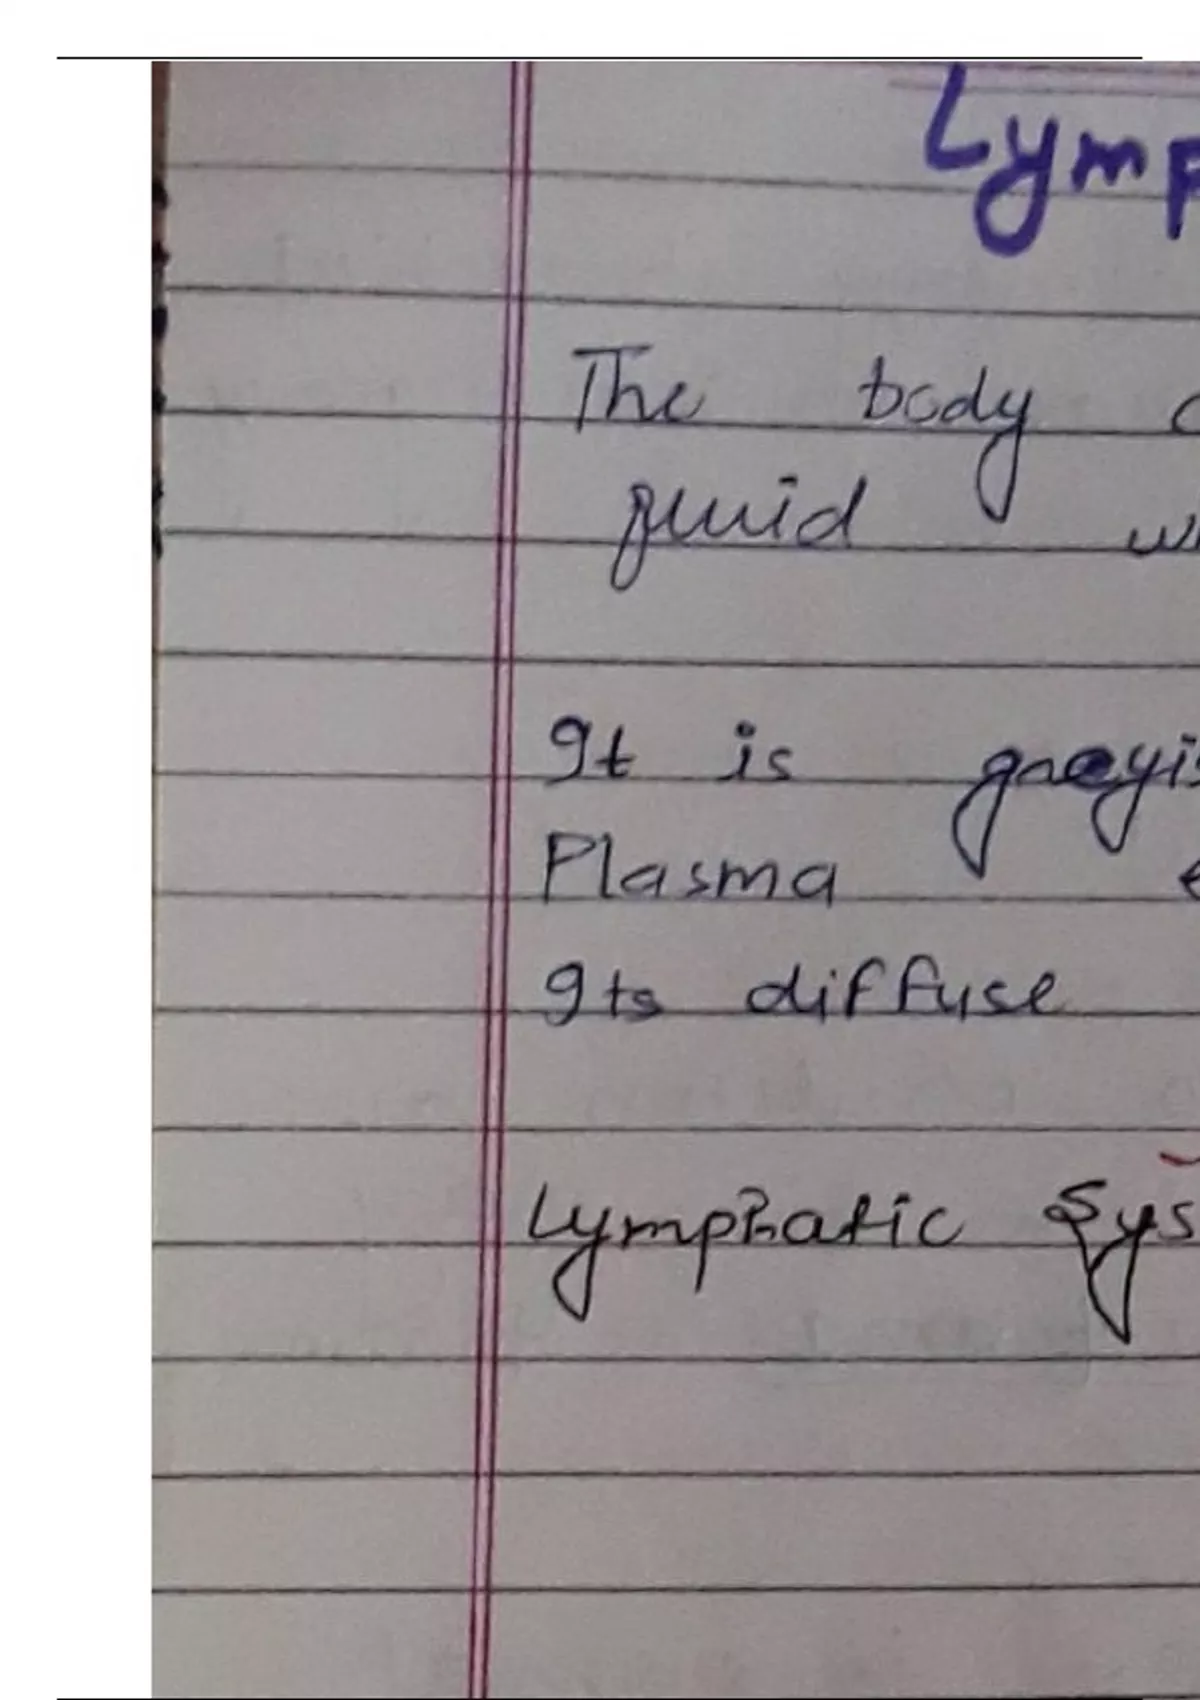 Lymp
The body
fluid
It is greyis
Plasma
Its diffuse
Lymphatic Sys